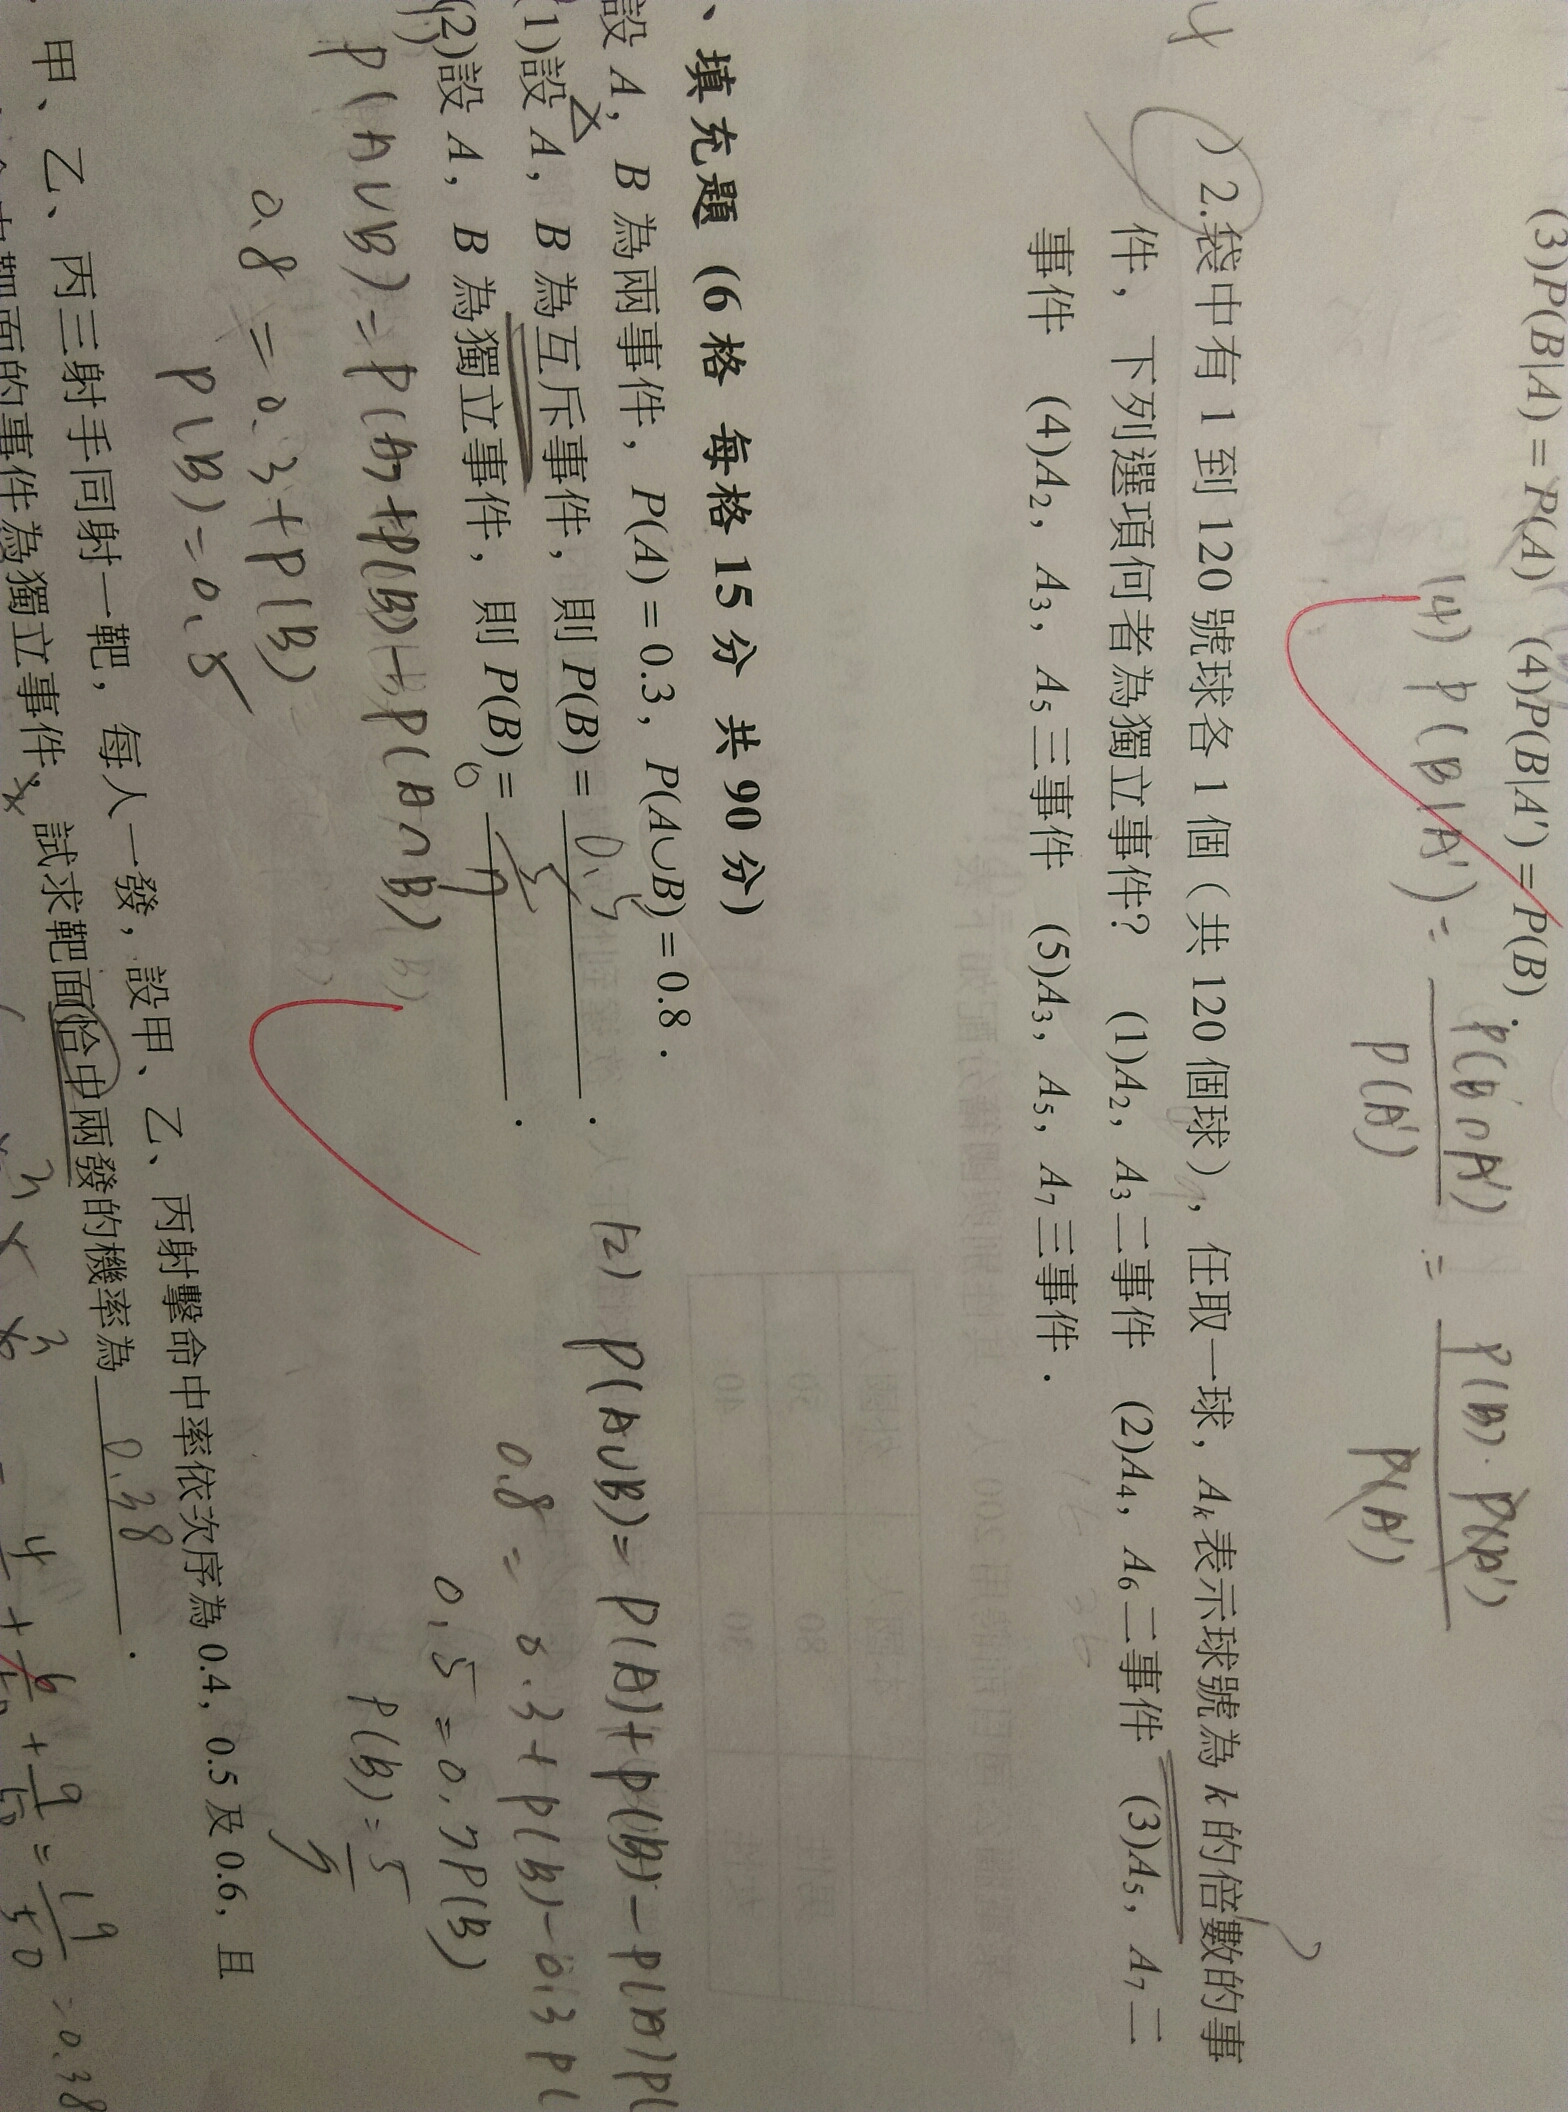 (3)P(B|A)=P(A) (4)P(B|A')=P(B).
(4) P(B|A')= P(B∩A') / P(A') = P(B)·P(A') / P(A')
) 2.袋中有 1 到 120 號球各 1 個(共 120 個球),任取一球,Ak 表示球號為 k 的倍數的事
件,下列選項何者為獨立事件? (1)A2,A3二事件 (2)A4,A6二事件 (3)A5,A7二
事件 (4)A2,A3,A5三事件 (5)A3,A5,A7三事件.
、填充題 (6 格 每格 15 分 共 90 分)
設 A,B 為兩事件,P(A)=0.3,P(A∪B)=0.8.
(1)設 A,B 為互斥事件,則 P(B)= 0.5 .
(2)設 A,B 為獨立事件,則 P(B)= 5/7 .
P(A∪B)=P(A)+P(B)-P(A∩B)
0.8=0.3+P(B)
P(B)=0.5
(2) P(A∪B)=P(A)+P(B)-P(A)P(
0.8=0.3+P(B)-0.3P(
0.5=0.7P(B)
P(B)=5/7
甲、乙、丙三射手同射一靶,每人一發,設甲、乙、丙射擊命中率依次序為 0.4,0.5 及 0.6,且
中靶面的事件為獨立事件,試求靶面恰中兩發的機率為 0.38 .
=19/50=0.38